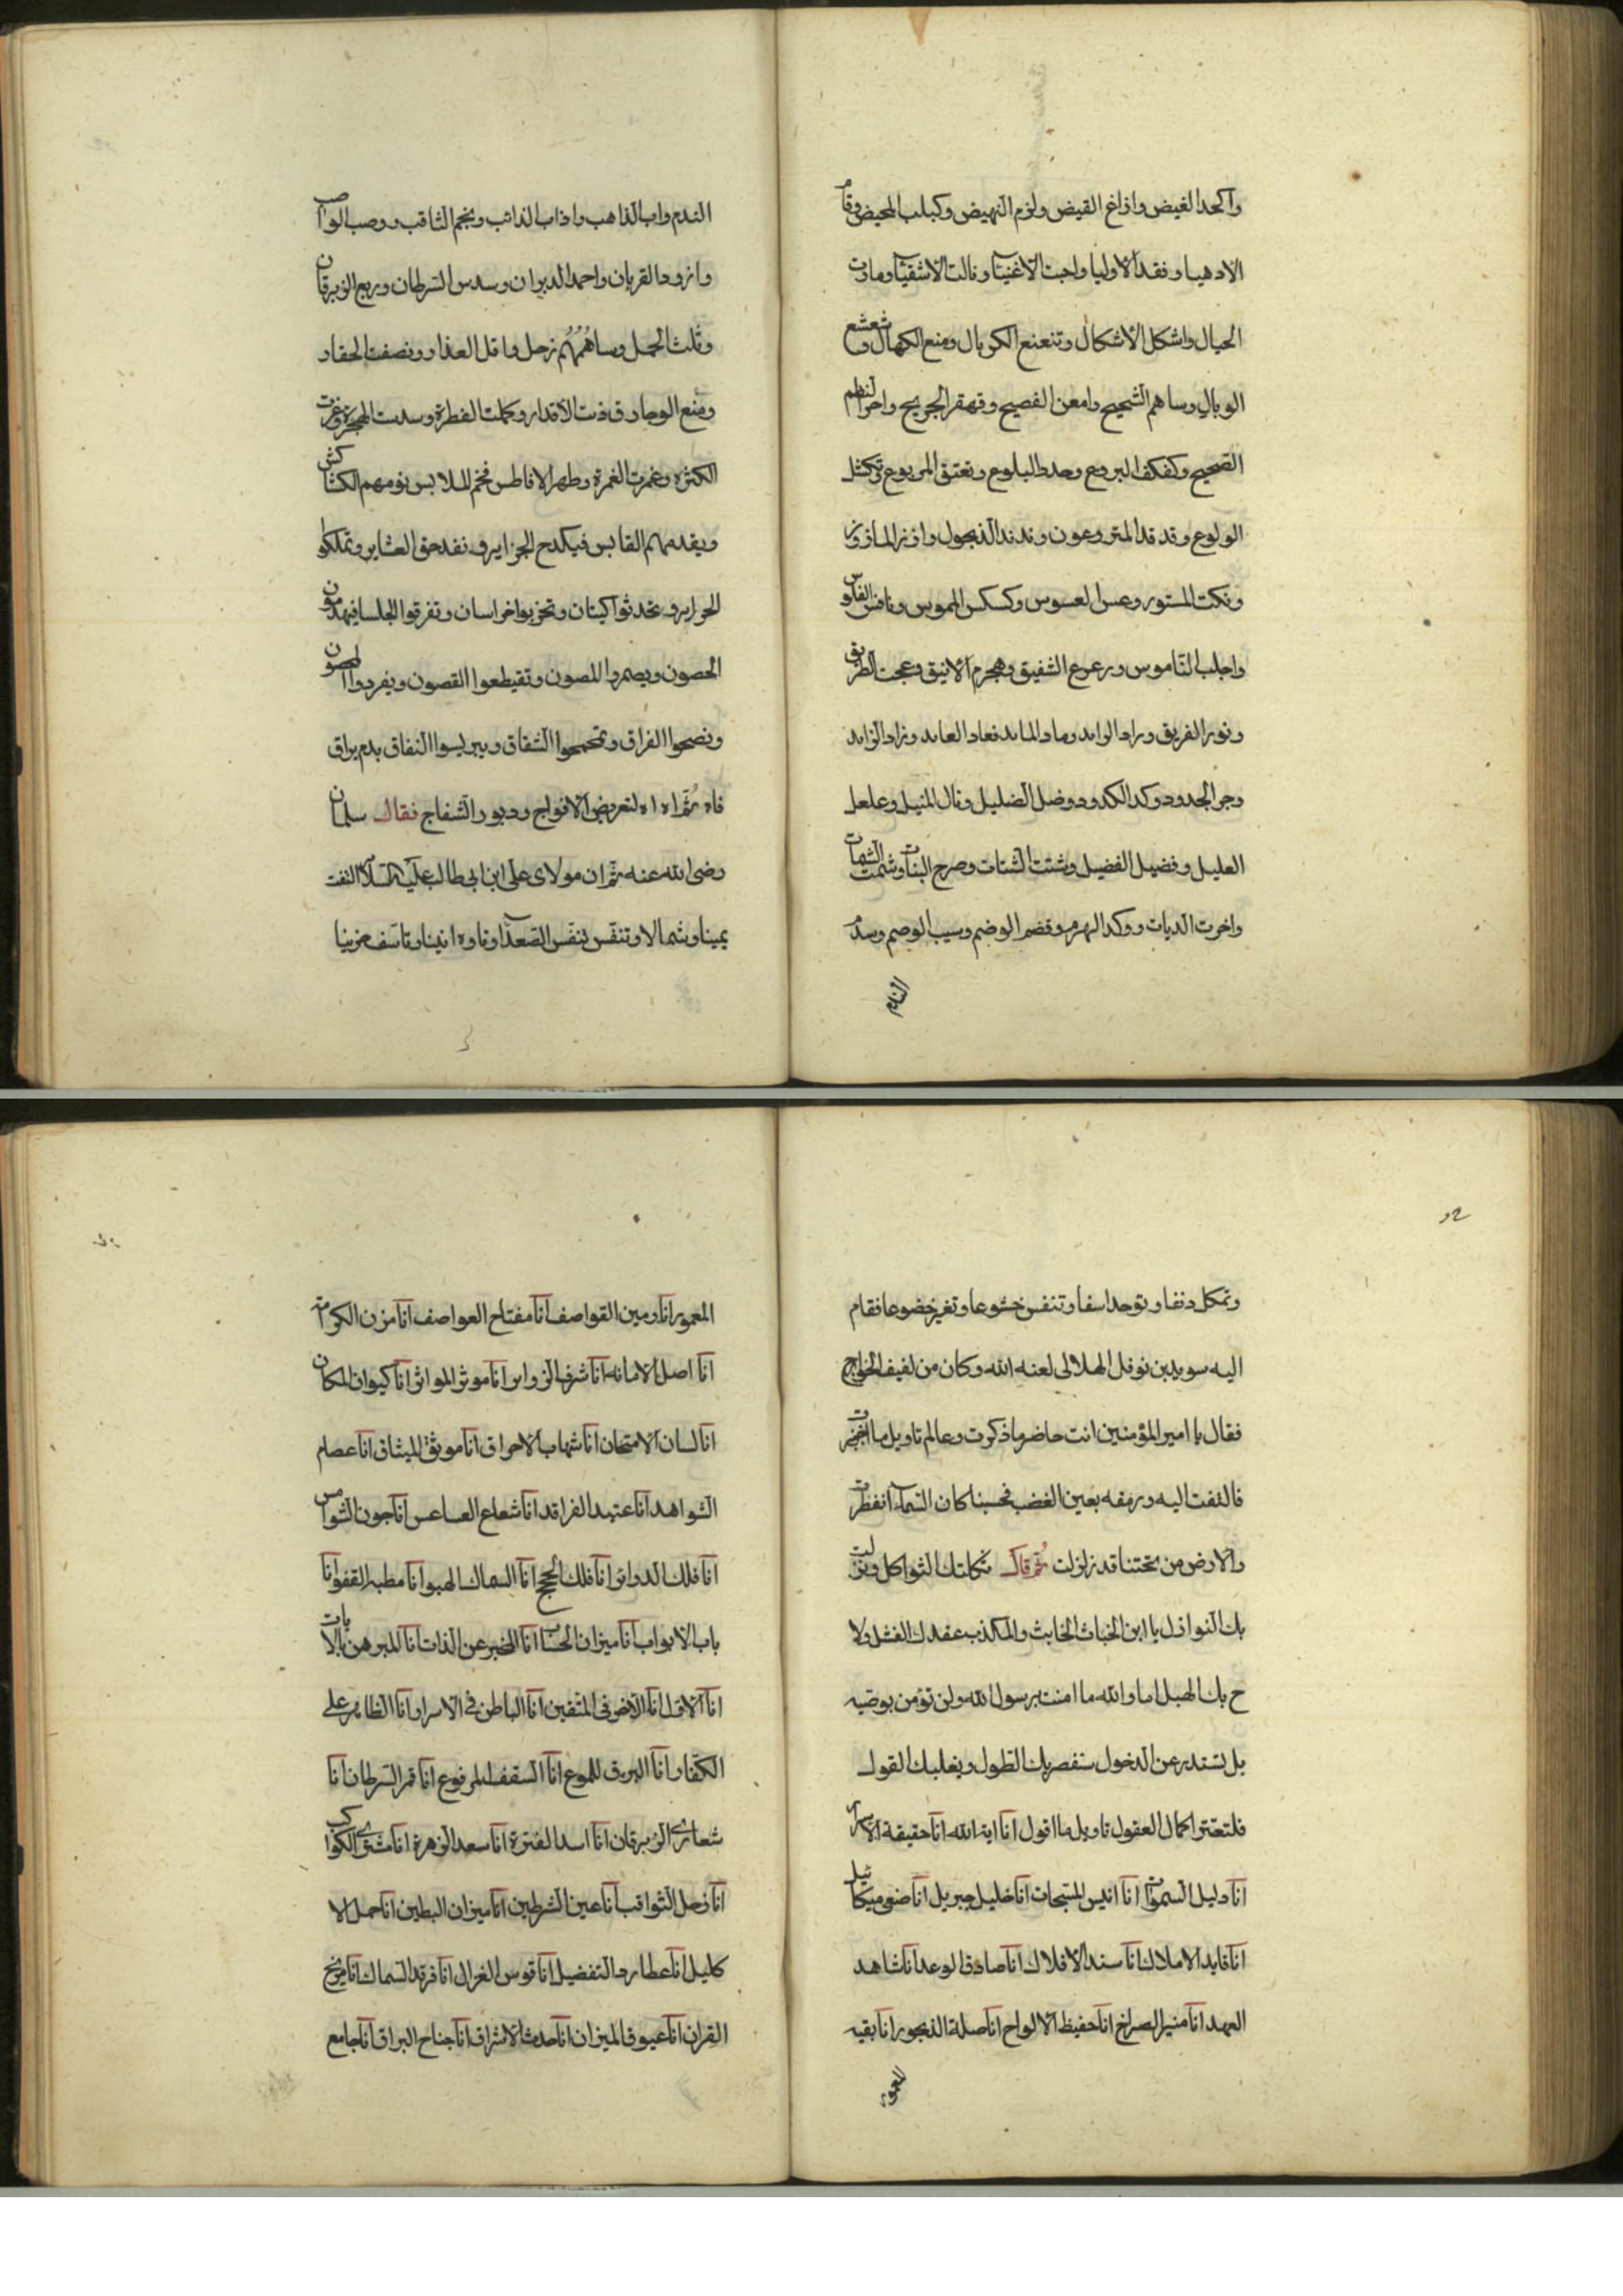 واكحد الغيض وازاغ القيض ولزم النهيض وكبلب المحيض وقام
الادهيا وفقد الاوليا واجبت الاغنيا ونالت الاشقيا ومادت
الحبال واشكل الاشكال وتنعنع الكربال ومنع الكهال وشعشع
الوبال وساهم الشحيح وامعن الفصيح وقهقر الجريح واحر النظم
الصحيح وكفكف البروع وحدط البلوع وتعتق المربوع وتكثل
الولوع وقد قد المتروعون وندند الذيجول واذز الماذوز
ونكت المستور وعس العسوس وكسكس الهموس ونافس الفلوس
واجلب الناموس ورعرع الشفيق وهجرم الانيق وعجت الطريق
ونور الفريق وراد الوايد وماد المايد فعاد العايد وزاد الزايد
وجر الجدود وكد الكدود وضل الضليل ونال المنيل وعلعل
العليل وفضيل الفضيل وشتت الشتات وصرح البنات وشمت الشمات
واخرت الديات ووكد الهرم وقضم الوضم وسيب الوصم وسدم
الندم
الندم واب الذاهب واذاب الذائب ونجم الثاقب ووصب الواصب
وازورد القربان واحمد الدبران وسدس السرطان وربع الزبرقان
وثلث الحمل وساهُمُهُم زحل واقل العذار ونصفت الحقار
ومنع الوجار وقذت الاقدار وكملت الفطرة وسدت الهجرة وغرت
الكثره وغمرت الغمرة وطهر الافاطس فخم الملابس يومهم الكشاكش
ويقدمهم القابس فيكدح الجزاير ونفدحق العشاير وتملكوا
الحراير وتحدثوا كيتان وتخربوا خراسان وتفرقوا الجلسا فيهدمون
الحصون ويصمروا المصون وتقيطعوا القصون ويفردوا الحصون
ونصحوا الفراق وتحمحموا الشقاق ويبربسوا النفاق بدم يراق
فاه ثُمَّ اه اه لتعريض الافواج ودبور الشفاج فقال سلمان
رضى الله عنه ثم ان مولاى على ابن ابى طالب عليه السلام التفت
يمينا وشمالا وتنفس تنفس الصعدا وتاوه انينا وتاسف حزينا
وتمكل دنفا وتوحد اسفا وتنفس خشوعا وتغير خضوعا فقام
اليه سويد بن نوفل الهلالى لعنه الله وكان من لفيف الخوارج
فقال يا امير المؤمنين انت حاضر ماذكرت وعالم تاويل ما اخبرت
فالتفت اليه ورمقه بعين الغضب فحسبنا كان السماء انفطرت
والارض من تحتنا قد زلزلت ثُمّ قال ثكلتك الثواكل ونزلت
بك النوازل يا ابن الخباث الخابث والمكذب عقدك الفشل ولا
ح بك الهبل اما والله ما امنت برسول الله ولن تؤمن بوصيه
بل تستدبر عن الدخول ستفصر بك الطول ويغلبك القول
فلتعتبر اكمال العقول تاويل ما اقول انا اية الله انا حقيقة الاسرار
انا دليل السموات انا انيس المسبحات انا خليل جبريل انا صفى ميكائيل
انا قايد الاملاك انا سند الافلاك انا صادق الوعد انا شاهد
العهد انا منير الصراخ انا حفيظ الالواح انا صلة الذيجور انا بقيه
المعمور
المعمور انا ومين القواصف انا مفتاح العواصف انا مزن الكرامة
انا اصل الامانه انا شرف الزواير انا موثر المواثر انا كيوان المكان
انا لسان الامتحان انا شهاب الاحراق انا موثق الميثاق انا عصام
الشواهد انا عتيد الفراقد انا شعاع العساعس انا جون الشوامس
انا فلك الدواير انا فلك الحجج انا السماك الهبو انا مطبه القفوانا
باب الابواب انا ميزان الحساب انا المخبر عن الذات انا المبرهن بالايات
انا الاول انا الاخر فى المتقين انا الباطن فى الاسرار انا الظاهر على
الكفار انا البرق اللموع انا السقف المرفوع انا قمر السرطان انا
شعارى الزبرقان انا اسد الفترة انا سعد الزهرة انا مشترى الكواكب
انا زحل الثواقب انا عين الشرطين انا ميزان البطين انا حمل الا
كليل انا عطارد التفضيل انا قوس الغزال انا فرقد السماك انا مريخ
القران انا عيوق الميزان انا حدث الاشراق انا جناح البراق انا جامع